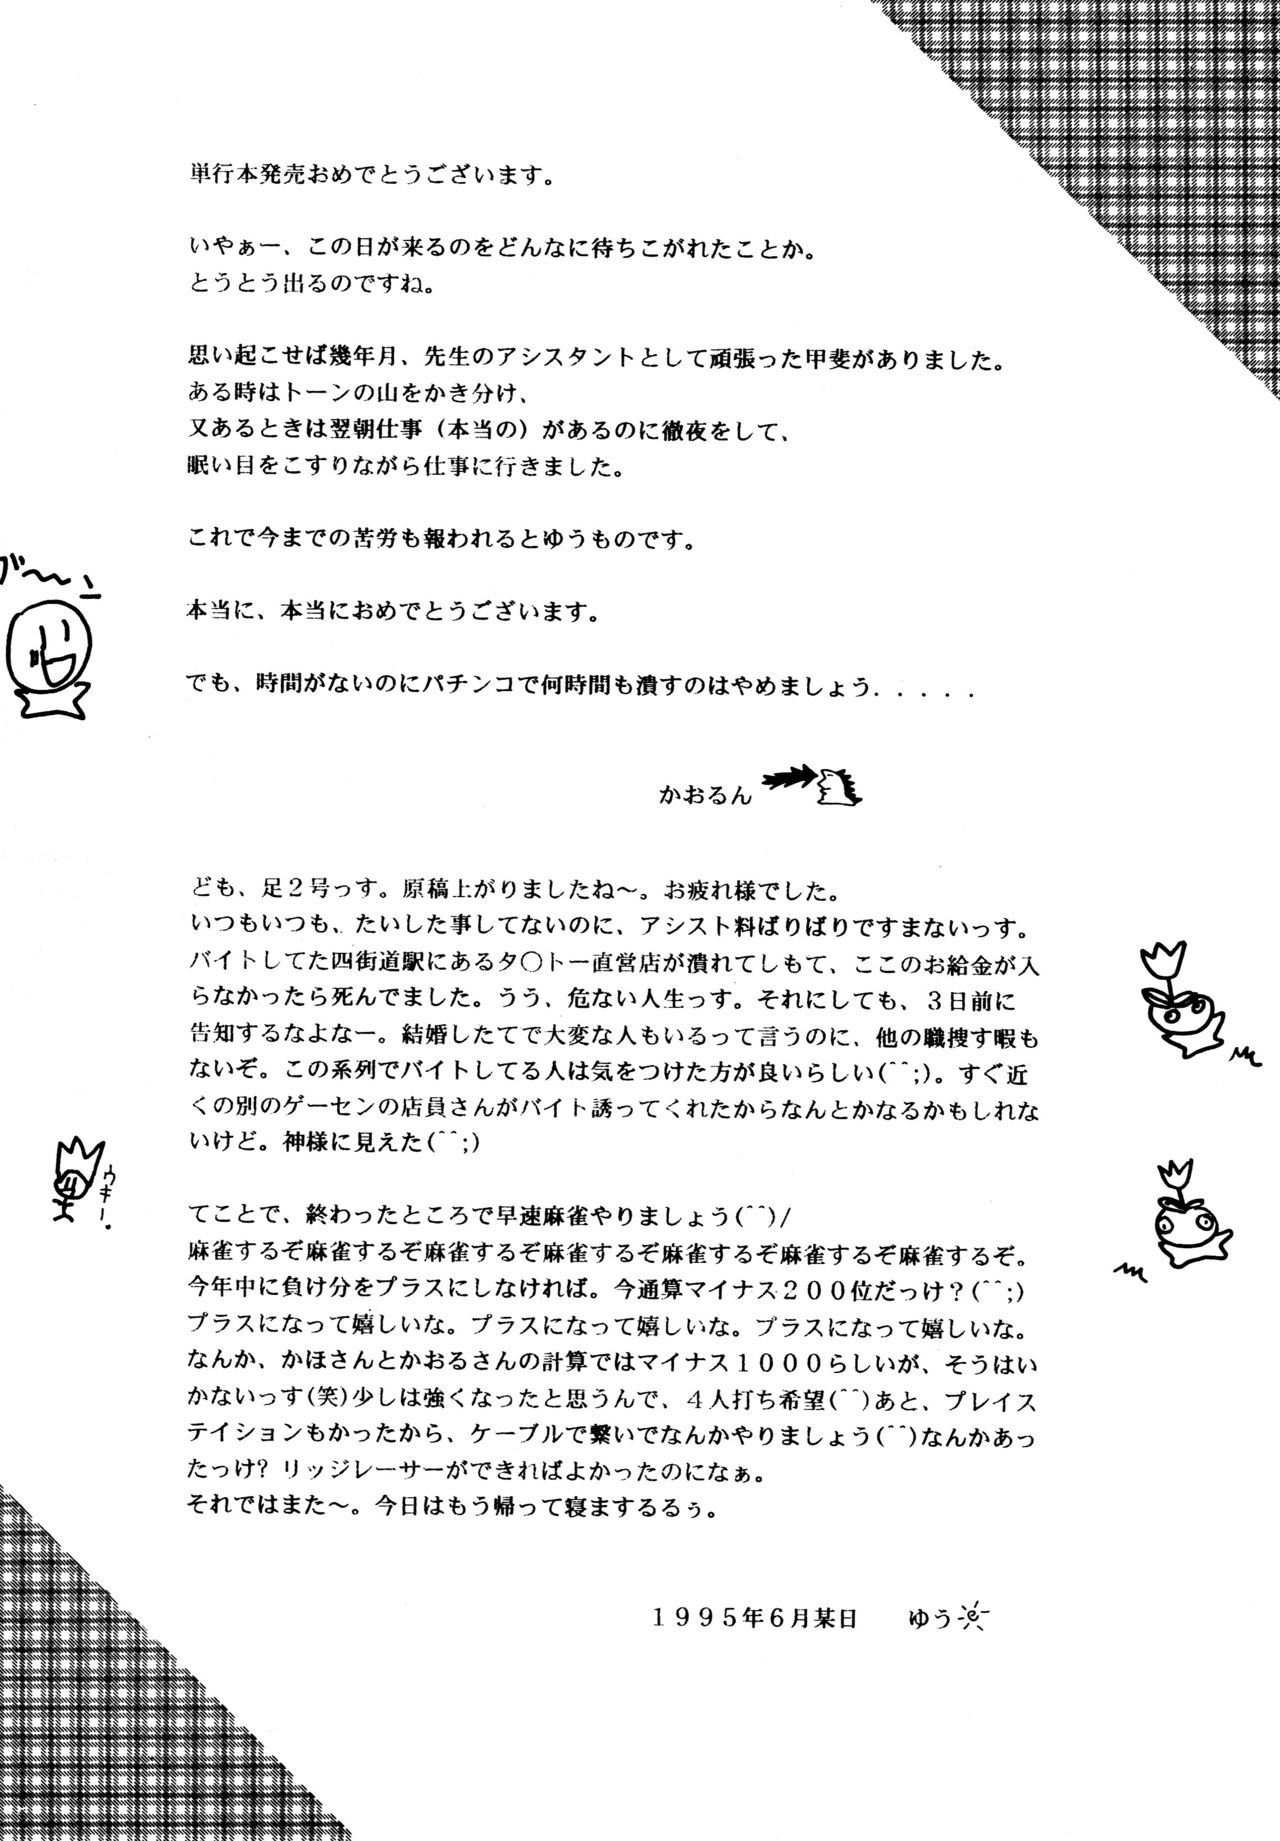 単行本発売おめでとうございます。
いやぁー、この日が来るのをどんなに待ちこがれたことか。
とうとう出るのですね。
思い起こせば幾年月、先生のアシスタントとして頑張った甲斐がありました。
ある時はトーンの山をかき分け、
又あるときは翌朝仕事（本当の）があるのに徹夜をして、
眠い目をこすりながら仕事に行きました。
これで今までの苦労も報われるとゆうものです。
本当に、本当におめでとうございます。
でも、時間がないのにパチンコで何時間も潰すのはやめましょう．．．．．
かおるん
ども、足２号っす。原稿上がりましたね～。お疲れ様でした。
いつもいつも、たいした事してないのに、アシスト料ばりばりですまないっす。
バイトしてた四街道駅にあるタ〇トー直営店が潰れてしもて、ここのお給金が入
らなかったら死んでました。うう、危ない人生っす。それにしても、３日前に
告知するなよなー。結婚したてで大変な人もいるって言うのに、他の職捜す暇も
ないぞ。この系列でバイトしてる人は気をつけた方が良いらしい(^^;)。すぐ近
くの別のゲーセンの店員さんがバイト誘ってくれたからなんとかなるかもしれな
いけど。神様に見えた(^^;)
てことで、終わったところで早速麻雀やりましょう(^^)/
麻雀するぞ麻雀するぞ麻雀するぞ麻雀するぞ麻雀するぞ麻雀するぞ麻雀するぞ。
今年中に負け分をプラスにしなければ。今通算マイナス２００位だっけ？(^^;)
プラスになって嬉しいな。プラスになって嬉しいな。プラスになって嬉しいな。
なんか、かほさんとかおるさんの計算ではマイナス１０００らしいが、そうはい
かないっす(笑)少しは強くなったと思うんで、４人打ち希望(^^)あと、プレイス
テイションもかったから、ケーブルで繋いでなんかやりましょう(^^)なんかあっ
たっけ? リッジレーサーができればよかったのになぁ。
それではまた～。今日はもう帰って寝まするるぅ。
１９９５年６月某日　　ゆう
ウキー。